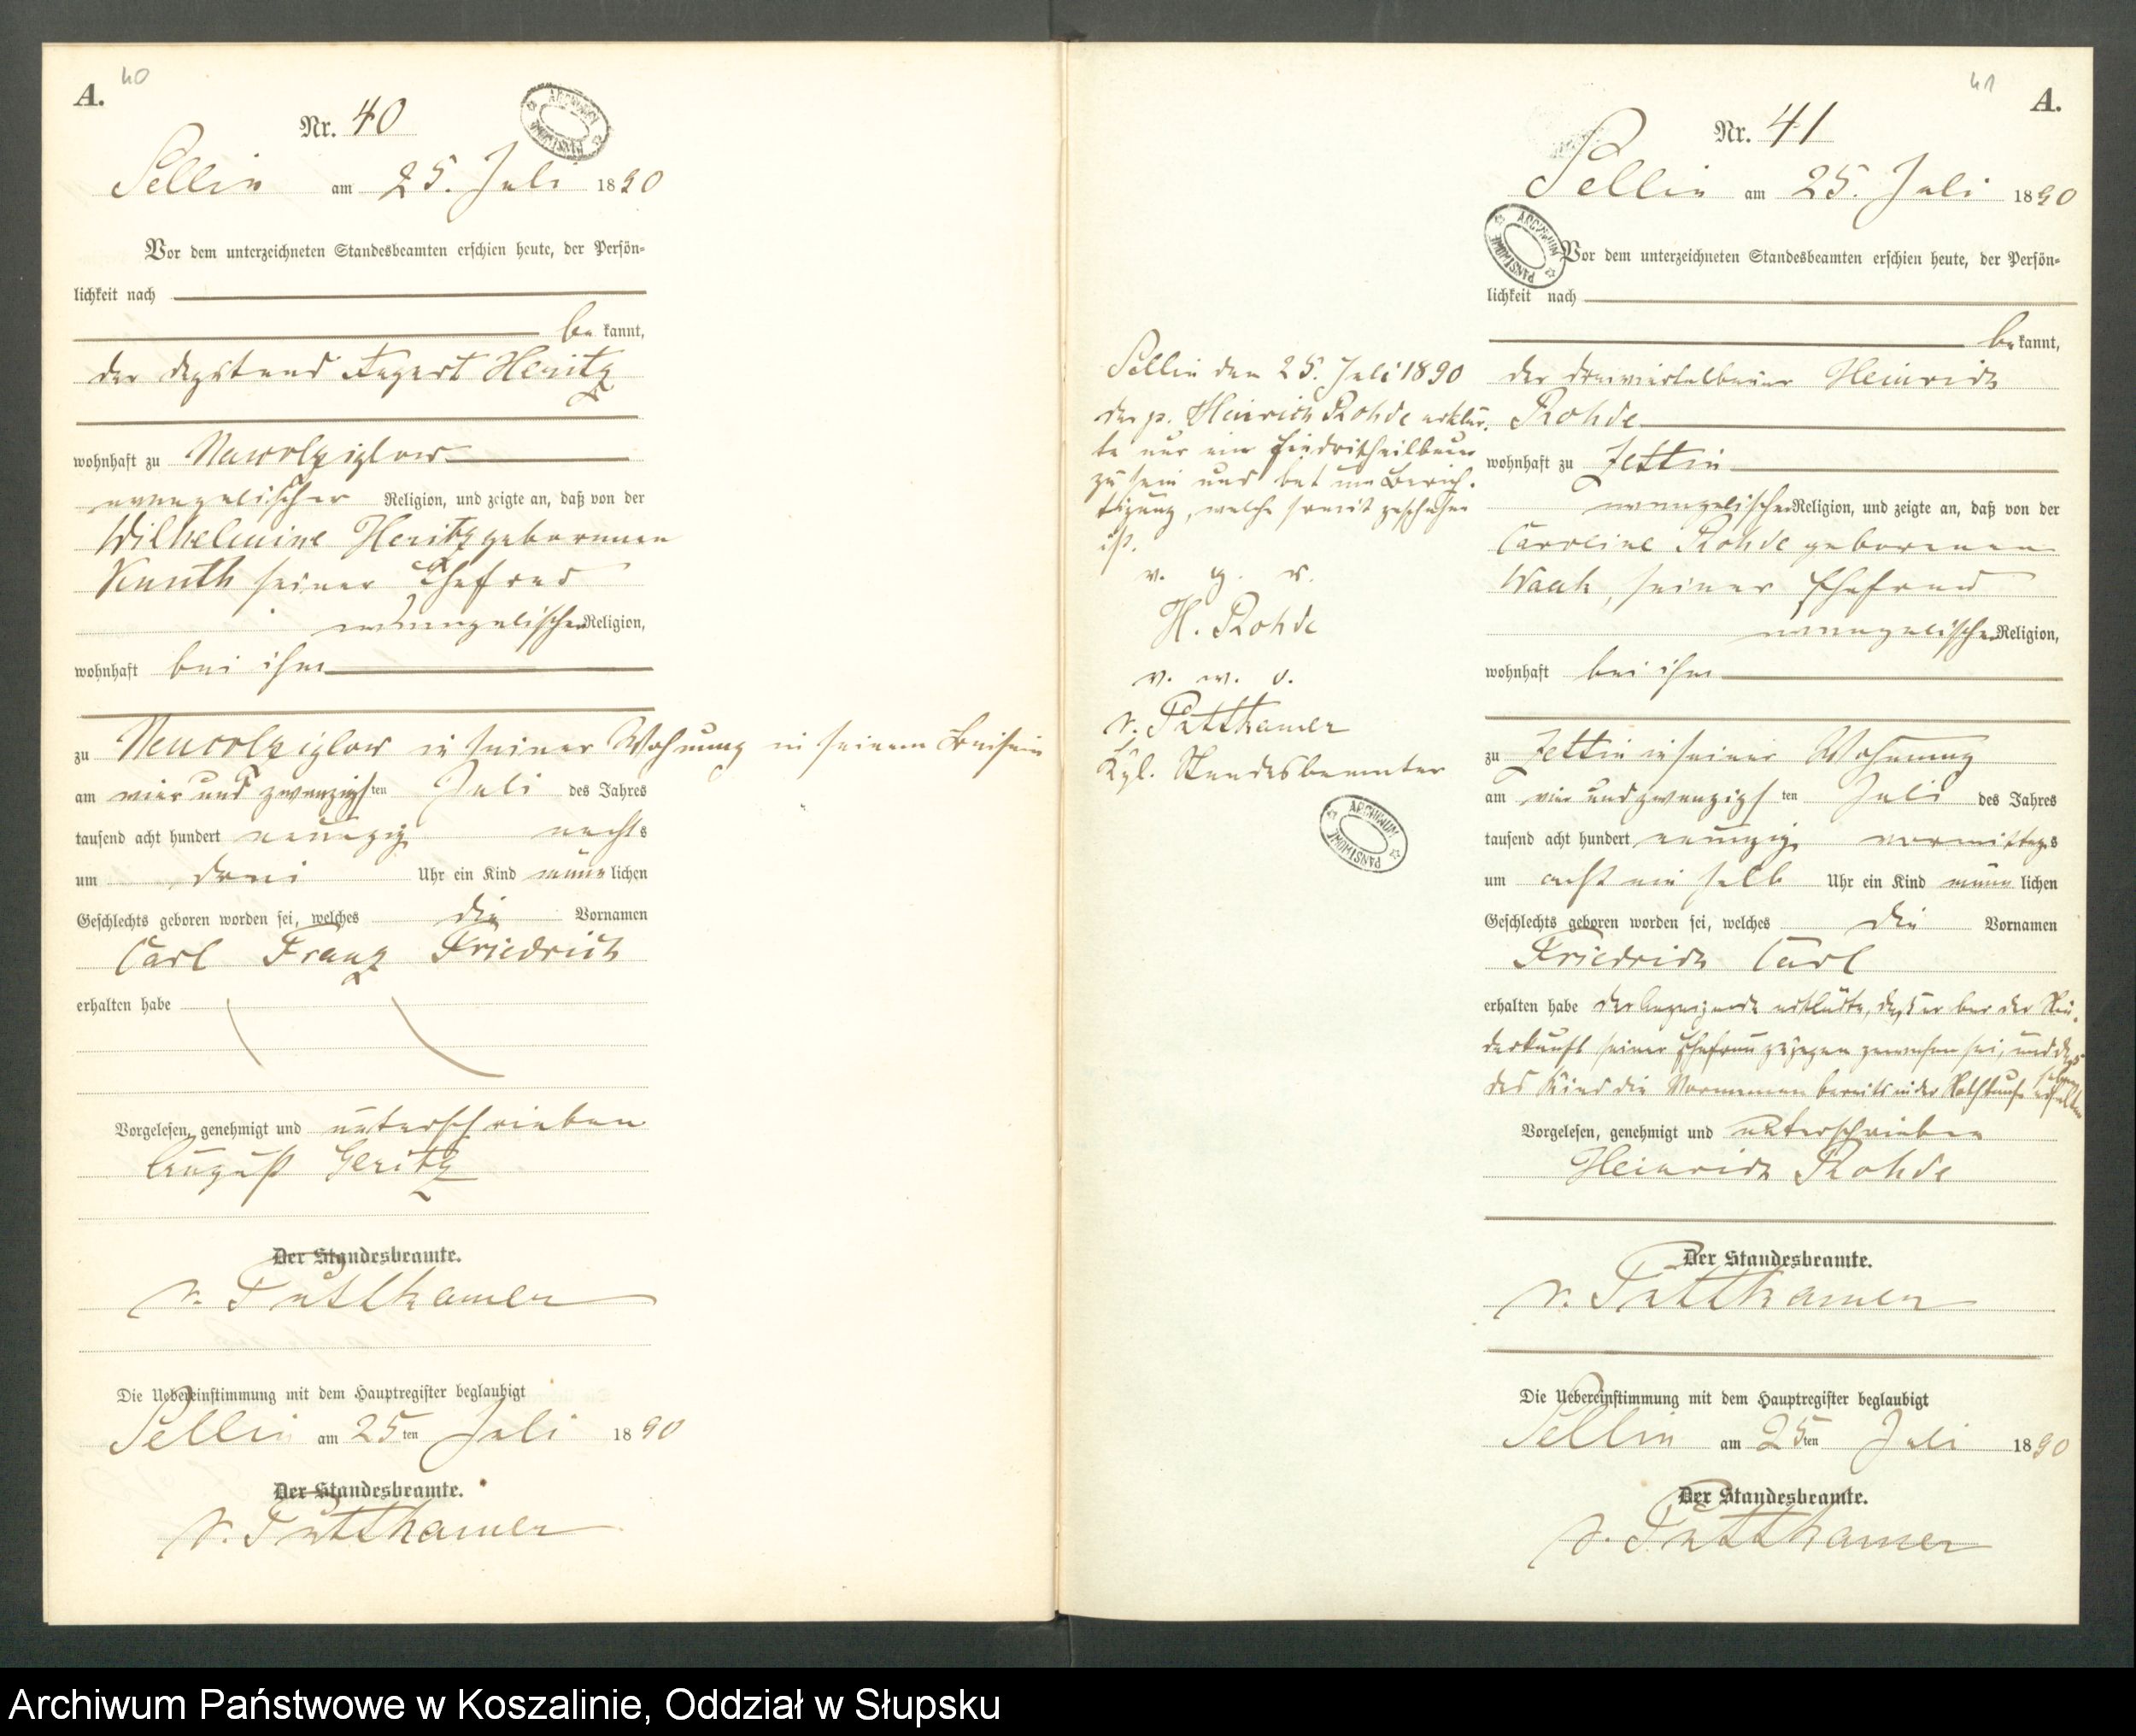 A.
40
Nr. 40
Sellin am 25. Juli 1890
Vor dem unterzeichneten Standesbeamten erschien heute, der Persön-
lichkeit nach
be kannt,
der August Heritz
wohnhaft zu
evangelischer Religion, und zeigte an, daß von der
Wilhelmine Heritz geborenen
Kunth seiner Ehefrau
evangelischer Religion,
wohnhaft bei ihm
zu in seiner Wohnung in seinem Beisein
am vier und zwanzigsten Juli des Jahres
tausend acht hundert neunzig nachts
um drei Uhr ein Kind männlichen
Geschlechts geboren worden sei, welches die Vornamen
Carl Franz Friedrich
erhalten habe
Vorgelesen, genehmigt und unterschrieben
August
Der Standesbeamte.
v. Puttkamer
Die Uebereinstimmung mit dem Hauptregister beglaubigt
Sellin am 25ten Juli 1890
Der Standesbeamte.
v. Puttkamer
41
A.
Nr. 41
Sellin am 25. Juli 1890
Vor dem unterzeichneten Standesbeamten erschien heute, der Persön-
lichkeit nach
be kannt,
der Dreiviertelbauer Heinrich
Rohde
wohnhaft zu Zettin
evangelischer Religion, und zeigte an, daß von der
Caroline Rohde geborenen
Waak, seiner Ehefrau
evangelischer Religion,
wohnhaft bei ihm
zu Zettin in seiner Wohnung
am vier und zwanzigsten Juli des Jahres
tausend acht hundert neunzig vormittags
um acht ein halb Uhr ein Kind männlichen
Geschlechts geboren worden sei, welches die Vornamen
Friedrich Carl
erhalten habe der Anzeigende erklärte, daß er bei der Nie-
derkunft seiner Ehefrau zugegen gewesen sei, und daß
das Kind die Vornamen bereits in der Nothtaufe erhalten
Vorgelesen, genehmigt und unterschrieben
Heinrich Rohde
Der Standesbeamte.
v. Puttkamer
Die Uebereinstimmung mit dem Hauptregister beglaubigt
Sellin am 25ten Juli 1890
Der Standesbeamte.
v. Puttkamer
Sellin den 25. Juli 1890
der p. Heinrich Rohde erklär-
te nur ein
zu sein und bat um Berich-
tigung, welche somit geschehen
ist.
v. g. u.
H. Rohde
v. w. o.
v. Puttkamer
Kgl. Standesbeamter
ARCHIWUM PAŃSTWOWE
ARCHIWUM PAŃSTWOWE
ARCHIWUM PAŃSTWOWE
Archiwum Państwowe w Koszalinie, Oddział w Słupsku